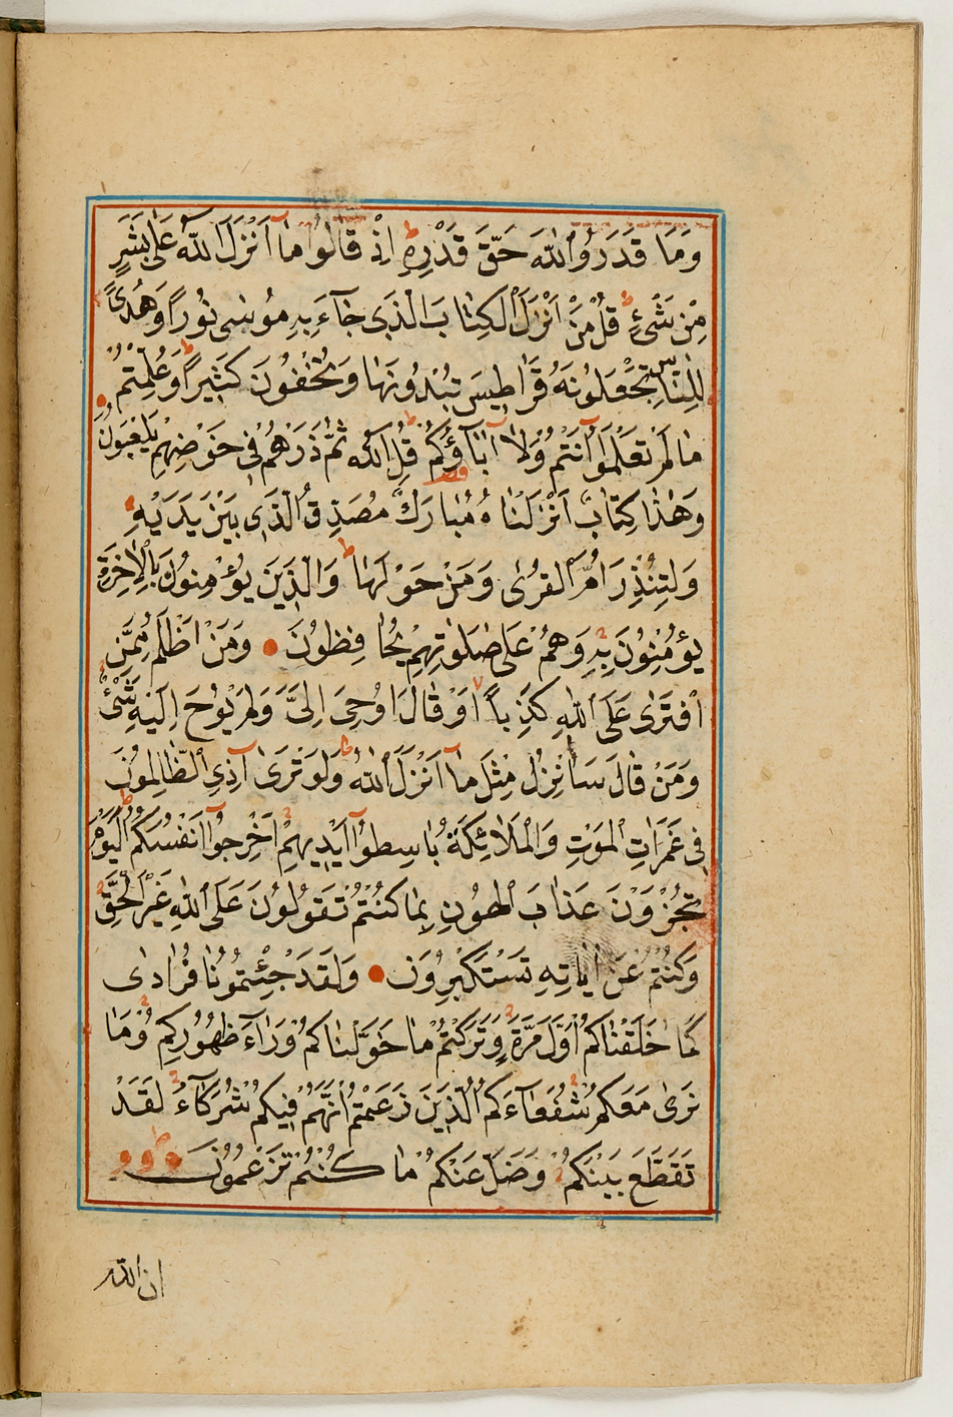 وَمَا قَدَرُوا اللّٰهَ حَقَّ قَدْرِهِ اِذْ قَالُوا مَا اَنْزَلَ اللّٰهُ عَلٰى بَشَرٍ
مِنْ شَىْءٍ قُلْ مَنْ اَنْزَلَ الْكِتَابَ الَّذِى جَاءَ بِهِ مُوسٰى نُورًا وَهُدًى
لِلنَّاسِ تَجْعَلُونَهُ قَرَاطِيسَ تُبْدُونَهَا وَتُخْفُونَ كَثِيرًا وَعُلِّمْتُمْ
مَا لَمْ تَعْلَمُوا اَنْتُمْ وَلَا اٰبَاؤُكُمْ قُلِ اللّٰهُ ثُمَّ ذَرْهُمْ فِى خَوْضِهِمْ يَلْعَبُونَ
وَهٰذَا كِتَابٌ اَنْزَلْنَاهُ مُبَارَكٌ مُصَدِّقُ الَّذِى بَيْنَ يَدَيْهِ
وَلِتُنْذِرَ اُمَّ الْقُرٰى وَمَنْ حَوْلَهَا وَالَّذِينَ يُؤْمِنُونَ بِالْاٰخِرَةِ
يُؤْمِنُونَ بِهِ وَهُمْ عَلٰى صَلٰوتِهِمْ يُحَافِظُونَ وَمَنْ اَظْلَمُ مِمَّنِ
افْتَرٰى عَلَى اللّٰهِ كَذِبًا اَوْ قَالَ اُوحِىَ اِلَىَّ وَلَمْ يُوحَ اِلَيْهِ شَىْءٌ
وَمَنْ قَالَ سَاُنْزِلُ مِثْلَ مَا اَنْزَلَ اللّٰهُ وَلَوْ تَرٰى اِذِ الظَّالِمُونَ
فِى غَمَرَاتِ الْمَوْتِ وَالْمَلٰائِكَةُ بَاسِطُوا اَيْدِيهِمْ اَخْرِجُوا اَنْفُسَكُمُ الْيَوْمَ
تُجْزَوْنَ عَذَابَ الْهُونِ بِمَا كُنْتُمْ تَقُولُونَ عَلَى اللّٰهِ غَيْرَ الْحَقِّ
وَكُنْتُمْ عَنْ اٰيَاتِهِ تَسْتَكْبِرُونَ وَلَقَدْ جِئْتُمُونَا فُرَادٰى
كَمَا خَلَقْنَاكُمْ اَوَّلَ مَرَّةٍ وَتَرَكْتُمْ مَا خَوَّلْنَاكُمْ وَرَاءَ ظُهُورِكُمْ وَمَا
نَرٰى مَعَكُمْ شُفَعَاءَكُمُ الَّذِينَ زَعَمْتُمْ اَنَّهُمْ فِيكُمْ شُرَكَاءُ لَقَدْ
تَقَطَّعَ بَيْنَكُمْ وَضَلَّ عَنْكُمْ مَا كُنْتُمْ تَزْعُمُونَ
ان الله